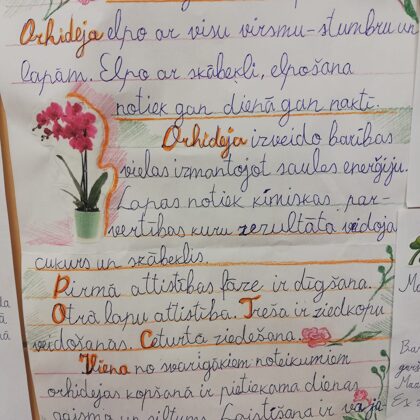 Orhideja elpo ar visu virsmu-stumbru un
lapām. Elpo ar skābekli, elpošana
notiek gan dienā gan naktī.
Orhideja izveido barības
vielas izmantojot saules enerģiju.
Lapas notiek ķīmiskas pār-
vērtības kuru rezultātā veidojas
cukurs un skābeklis
Pirmā attīstības fāze ir dīgšana.
Otrā lapu attīstība. Trešā ir ziedkopu
veidošanās. Ceturtā ziedēšana.
Viena no svarīgākiem noteikumiem
orhidejas kopšanā ir pietiekama dienas
gaisma un siltums. ir vaja
Ma
Bar
Maz
Ex